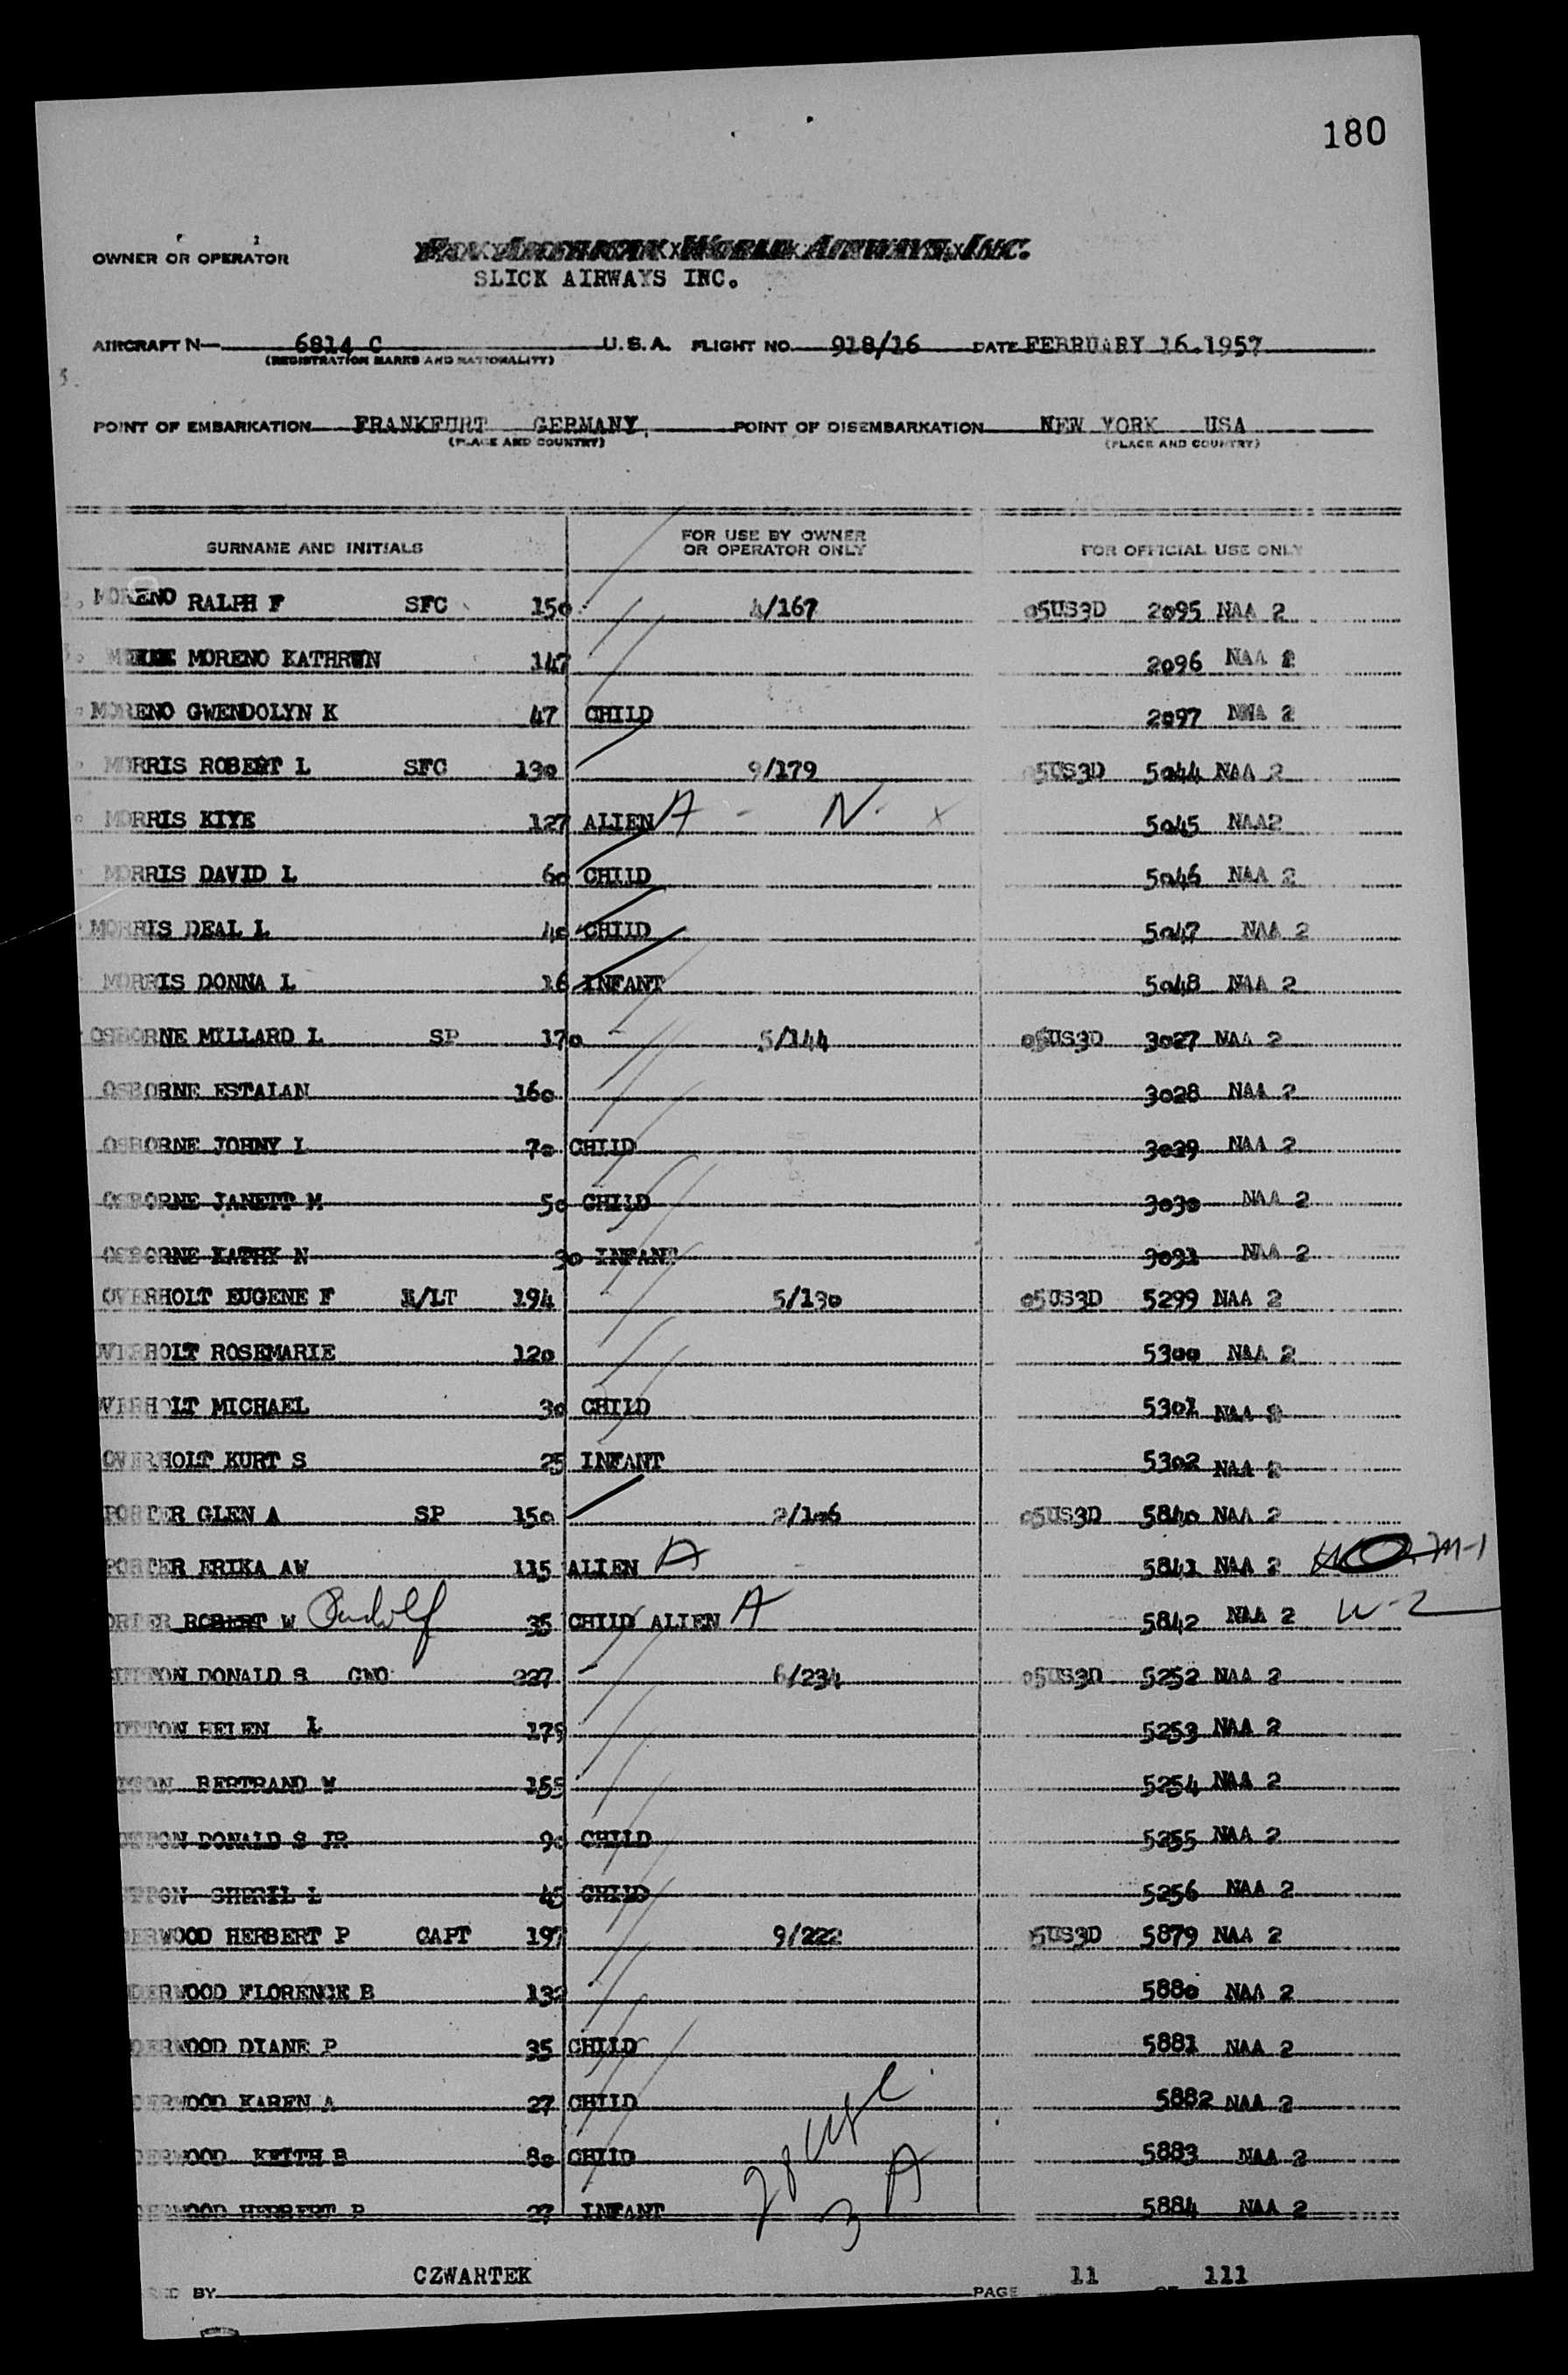 180
OWNER OR OPERATOR PAN AMERICAN WORLD AIRWAYS, INC.
SLICK AIRWAYS INC.
AIRCRAFT N 6814 C U.S.A. FLIGHT NO. 918/16 DATE FEBRUARY 16.1957
(REGISTRATION MARKS AND NATIONALITY)
POINT OF EMBARKATION FRANKFURT GERMANY, POINT OF DISEMBARKATION NEW YORK USA
(PLACE AND COUNTRY) (PLACE AND COUNTRY)
SURNAME AND INITIALS FOR USE BY OWNER OR OPERATOR ONLY FOR OFFICIAL USE ONLY
MORENO RALPH F SFC 150 4/167 05US3D 2095 NAA 2
MORENO KATHRWN 147 2096 NAA 2
MORENO GWENDOLYN K 47 CHILD 2097 NWA 2
MORRIS ROBERT L SFC 130 9/179 05US3D 5044 NAA 2
MORRIS KIYE 127 ALIEN A - N. x 5045 NAA2
MORRIS DAVID L 60 CHILD 5046 NAA 2
MORRIS DEAL L 40 CHILD 5047 NAA 2
MORRIS DONNA L 16 INFANT 5048 NAA 2
OSBORNE MILLARD L SP 170 5/144 05US3D 3027 NAA 2
OSBORNE ESTALAN 160 3028 NAA 2
OSBORNE JOHNY L 70 CHILD 3029 NAA 2
OSBORNE JANETT M 50 CHILD 3030 NAA 2
OSBORNE KATHY N 30 INFANT 3031 NAA 2
OVERHOLT EUGENE F 1/LT 194 5/130 05US3D 5299 NAA 2
OVERHOLT ROSEMARIE 120 5300 NAA 2
OVERHOLT MICHAEL 30 CHILD 5301 NAA 2
OVERHOLT KURT S 25 INFANT 5302 NAA 2
PORTER GLEN A SP 150 2/106 05US3D 5840 NAA 2
PORTER ERIKA AW 115 ALIEN A 5841 NAA 2 M-1
ORTER ROBERT W Rudolf 35 CHILD ALIEN A 5842 NAA 2 W-2
UTTON DONALD S GWO 227 6/234 05US3D 5252 NAA 2
UTTON HELEN L 175 5253 NAA 2
TTON BERTRAND W 155 5254 NAA 2
UTTON DONALD S JR 90 CHILD 5255 NAA 2
TTON SHERIL L 45 CHILD 5256 NAA 2
DERWOOD HERBERT P CAPT 197 9/222 5US3D 5879 NAA 2
DERWOOD FLORENCE B 132 5880 NAA 2
DERWOOD DIANE P 35 CHILD 5881 NAA 2
DERWOOD KAREN A 27 CHILD 5882 NAA 2
DERWOOD KEITH B 80 CHILD 5883 NAA 2
DERWOOD HERBERT P 27 INFANT 5884 NAA 2
28 USC
3 A
CZWARTEK 11 111
BY PAGE OF